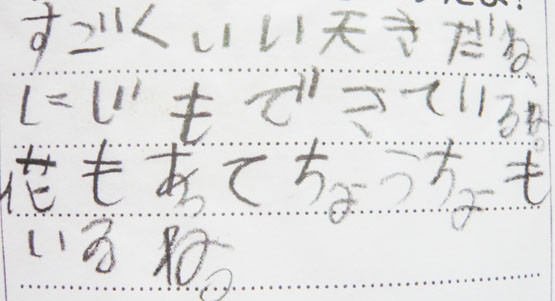 すごくいい天きだね、
にじもできているね。
花もあってちょうちょも
いるね。